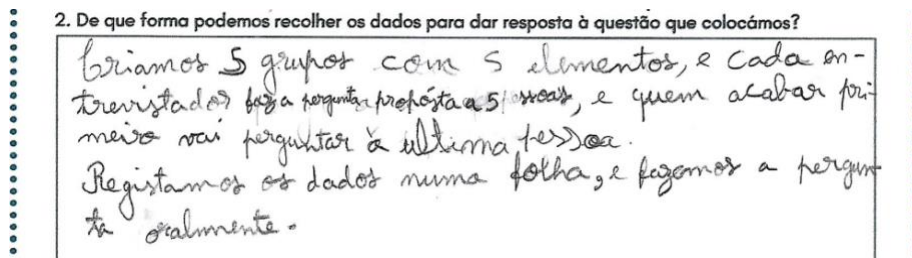 2. De que forma podemos recolher os dados para dar resposta à questão que colocámos?
Criamos 5 grupos com 5 elementos, e cada en-
trevistador faz a pergunta proposta a 5 pessoas, e quem acabar pri-
meiro vai perguntar à ultima pessoa.
Registamos os dados numa folha, e fazemos a pergun-
ta oralmente.